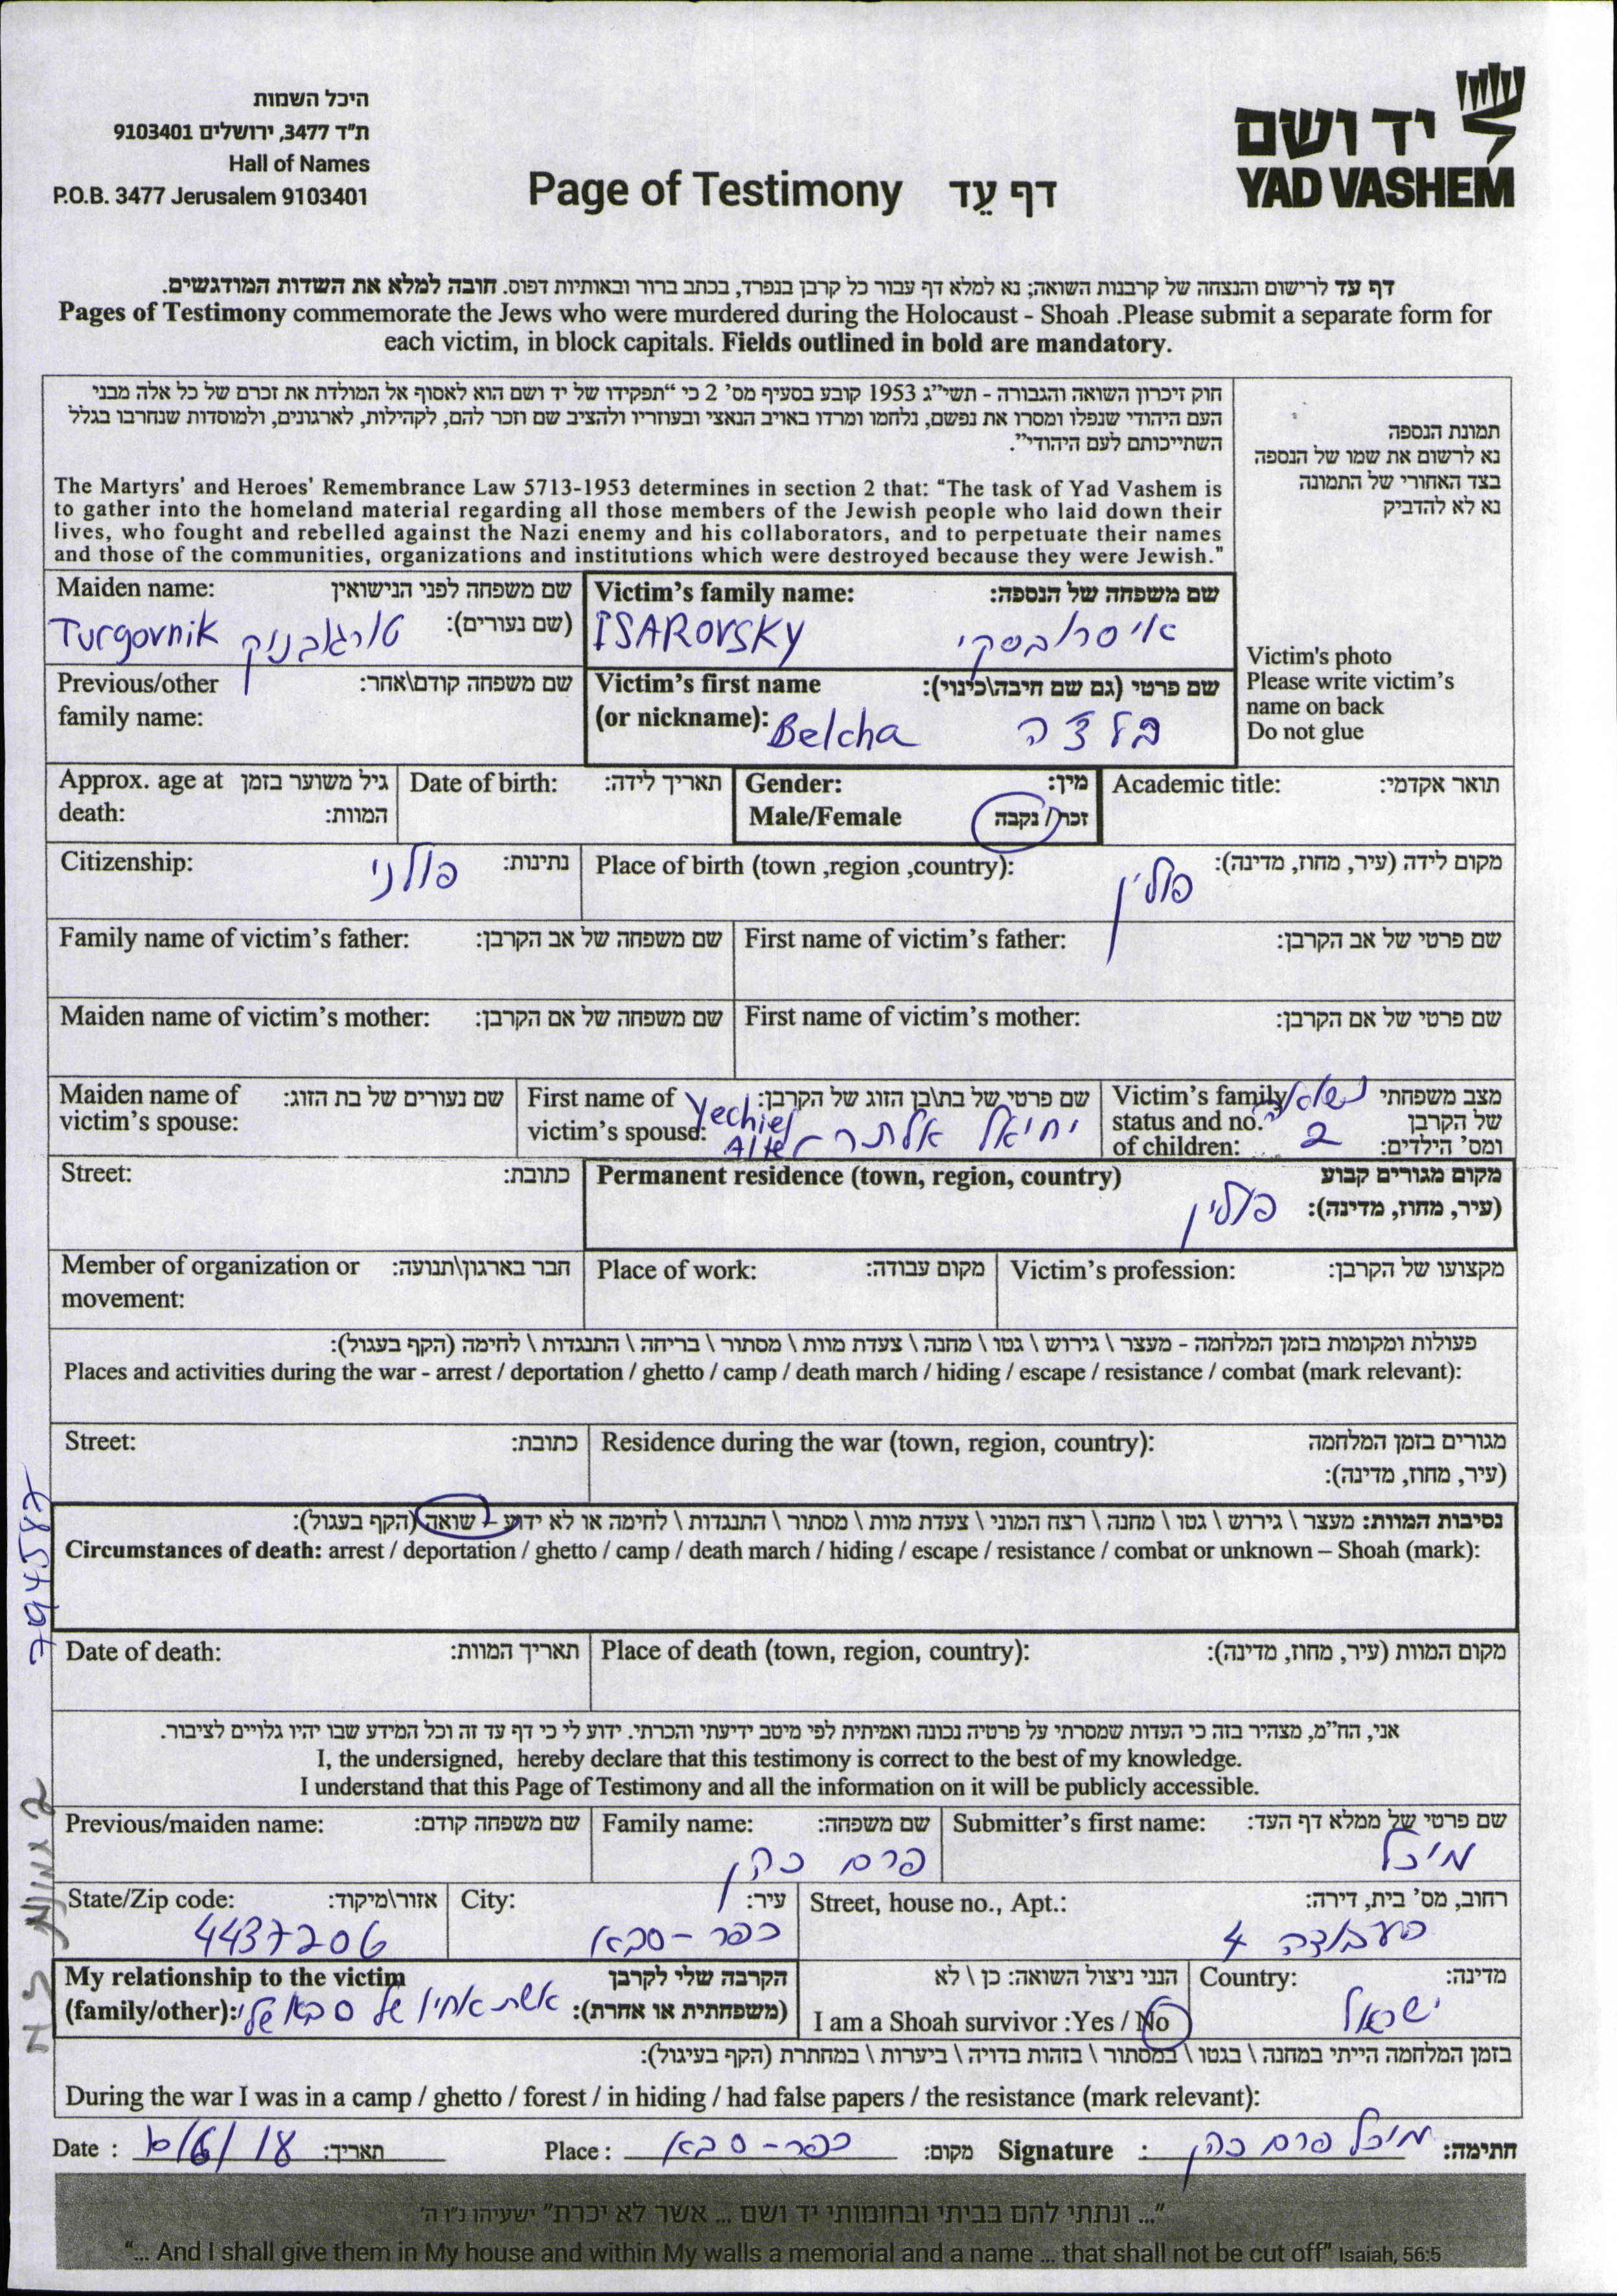 היכל השמות
ת"ד 3477, ירושלים 9103401
Hall of Names
P.O.B. 3477 Jerusalem 9103401
Page of Testimony דף עֵד
יד ושם
YAD VASHEM
דף עד לרישום והנצחה של קרבנות השואה; נא למלא דף עבור כל קרבן בנפרד, בכתב ברור ובאותיות דפוס. חובה למלא את השדות המודגשים.
Pages of Testimony commemorate the Jews who were murdered during the Holocaust - Shoah .Please submit a separate form for
each victim, in block capitals. Fields outlined in bold are mandatory.
חוק זיכרון השואה והגבורה - תשי"ג 1953 קובע בסעיף מס' 2 כי "תפקידו של יד ושם הוא לאסוף אל המולדת את זכרם של כל אלה מבני
העם היהודי שנפלו ומסרו את נפשם, נלחמו ומרדו באויב הנאצי ובעוזריו ולהציב שם וזכר להם, לקהילות, לארגונים, ולמוסדות שנחרבו בגלל
השתייכותם לעם היהודי".
The Martyrs' and Heroes' Remembrance Law 5713-1953 determines in section 2 that: "The task of Yad Vashem is
to gather into the homeland material regarding all those members of the Jewish people who laid down their
lives, who fought and rebelled against the Nazi enemy and his collaborators, and to perpetuate their names
and those of the communities, organizations and institutions which were destroyed because they were Jewish."
תמונת הנספה
נא לרשום את שמו של הנספה
בצד האחורי של התמונה
נא לא להדביק
Victim's photo
Please write victim's
name on back
Do not glue
Maiden name: שם משפחה לפני הנישואין
(שם נעורים):
Turgovnik טורגובניק
Victim's family name: שם משפחה של הנספה:
ISAROVSKY איסרובסקי
Previous/other שם משפחה קודם\אחר:
family name:
Victim's first name שם פרטי (גם שם חיבה\כינוי):
(or nickname): Belcha בלצ'ה
Approx. age at גיל משוער בזמן
death: המוות:
Date of birth: תאריך לידה:
Gender: מין:
Male/Female זכר / נקבה
Academic title: תואר אקדמי:
Citizenship: נתינות: פולני
Place of birth (town ,region ,country): מקום לידה (עיר, מחוז, מדינה):
פולין
Family name of victim's father: שם משפחה של אב הקרבן:
First name of victim's father: שם פרטי של אב הקרבן:
Maiden name of victim's mother: שם משפחה של אם הקרבן:
First name of victim's mother: שם פרטי של אם הקרבן:
Maiden name of שם נעורים של בת הזוג:
victim's spouse:
First name of שם פרטי של בת\בן הזוג של הקרבן:
victim's spouse: Yechiel Alter יחיאל אלתר
Victim's family מצב משפחתי נשואה
status and no. של הקרבן
of children: ומס' הילדים: 2
Street: כתובת:
Permanent residence (town, region, country) מקום מגורים קבוע
(עיר, מחוז, מדינה): פולין
Member of organization or חבר בארגון\תנועה:
movement:
Place of work: מקום עבודה:
Victim's profession: מקצועו של הקרבן:
פעולות ומקומות בזמן המלחמה - מעצר \ גירוש \ גטו \ מחנה \ צעדת מוות \ מסתור \ בריחה \ התנגדות \ לחימה (הקף בעגול):
Places and activities during the war - arrest / deportation / ghetto / camp / death march / hiding / escape / resistance / combat (mark relevant):
Street: כתובת:
Residence during the war (town, region, country): מגורים בזמן המלחמה
(עיר, מחוז, מדינה):
נסיבות המוות: מעצר \ גירוש \ גטו \ מחנה \ רצח המוני \ צעדת מוות \ מסתור \ התנגדות \ לחימה או לא ידוע – שואה (הקף בעגול):
Circumstances of death: arrest / deportation / ghetto / camp / death march / hiding / escape / resistance / combat or unknown – Shoah (mark):
Date of death: תאריך המוות:
Place of death (town, region, country): מקום המוות (עיר, מחוז, מדינה):
אני, הח"מ, מצהיר בזה כי העדות שמסרתי על פרטיה נכונה ואמיתית לפי מיטב ידיעתי והכרתי. ידוע לי כי דף עד זה וכל המידע שבו יהיו גלויים לציבור.
I, the undersigned, hereby declare that this testimony is correct to the best of my knowledge.
I understand that this Page of Testimony and all the information on it will be publicly accessible.
Previous/maiden name: שם משפחה קודם:
Family name: שם משפחה:
פרם כהן
Submitter's first name: שם פרטי של ממלא דף העד:
מיכל
State/Zip code: אזור\מיקוד:
4437206
City: עיר:
כפר-סבא
Street, house no., Apt.: רחוב, מס' בית, דירה:
העבודה 4
My relationship to the victim הקרבה שלי לקרבן
(family/other): (משפחתית או אחרת): אשת אחיו של סבא שלי
הנני ניצול השואה: כן \ לא
I am a Shoah survivor :Yes / No
Country: מדינה:
ישראל
בזמן המלחמה הייתי במחנה \ בגטו \ במסתור \ בזהות בדויה \ ביערות \ במחתרת (הקף בעיגול):
During the war I was in a camp / ghetto / forest / in hiding / had false papers / the resistance (mark relevant):
Date : 10/6/18 תאריך: Place : כפר-סבא מקום: Signature : מיכל פרם כהן חתימה:
"... ונתתי להם בביתי ובחומותי יד ושם ... אשר לא יכרת" ישעיהו נ"ו ה'
"... And I shall give them in My house and within My walls a memorial and a name ... that shall not be cut off" Isaiah, 56:5
794587